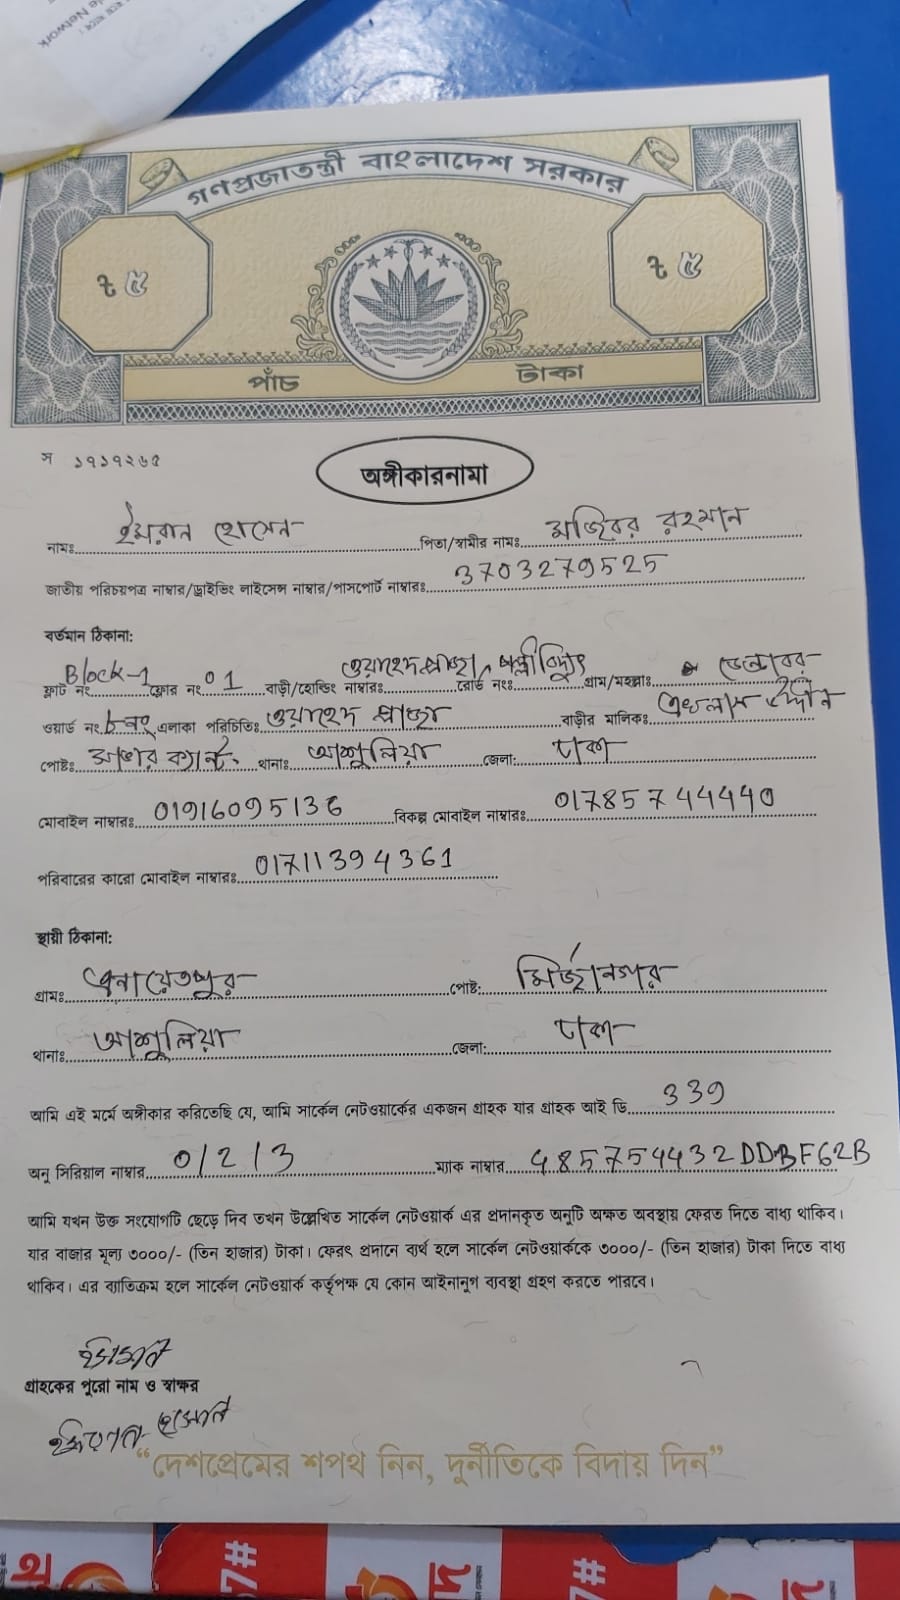 le Network
গণপ্রজাতন্ত্রী বাংলাদেশ সরকার
৳ ৫ ৳ ৫
পাঁচ টাকা
স ১৭১৭২৬৫
অঙ্গীকারনামা
নামঃ ইমরান হোসেন পিতা/স্বামীর নামঃ মজিবর রহমান
জাতীয় পরিচয়পত্র নাম্বার/ড্রাইভিং লাইসেন্স নাম্বার/পাসপোর্ট নাম্বারঃ 3703279525
বর্তমান ঠিকানা:
ফ্লাট নং Block-1 ফ্লোর নং 01 বাড়ী/হোল্ডিং নাম্বারঃ ওয়াহেদ প্লাজা, রোড নংঃ পল্লীবিদ্যুৎ গ্রাম/মহল্লাঃ ডেন্ডাবর
ওয়ার্ড নং ৮নং এলাকা পরিচিতিঃ ওয়াহেদ প্লাজা বাড়ীর মালিকঃ এখলাস উদ্দীন
পোষ্টঃ সাভার ক্যান্ট. থানাঃ আশুলিয়া জেলা: ঢাকা
মোবাইল নাম্বারঃ 01916095136 বিকল্প মোবাইল নাম্বারঃ 01785744440
পরিবারের কারো মোবাইল নাম্বারঃ 01711394361
স্থায়ী ঠিকানা:
গ্রামঃ এনায়েতপুর পোষ্ট: মির্জানগর
থানাঃ আশুলিয়া জেলা: ঢাকা
আমি এই মর্মে অঙ্গীকার করিতেছি যে, আমি সার্কেল নেটওয়ার্কের একজন গ্রাহক যার গ্রাহক আই ডি 339
অনু সিরিয়াল নাম্বার 0/2/3 ম্যাক নাম্বার 485754432DDBF62B
আমি যখন উক্ত সংযোগটি ছেড়ে দিব তখন উল্লেখিত সার্কেল নেটওয়ার্ক এর প্রদানকৃত অনুটি অক্ষত অবস্থায় ফেরত দিতে বাধ্য থাকিব।
যার বাজার মূল্য ৩০০০/- (তিন হাজার) টাকা। ফেরৎ প্রদানে ব্যর্থ হলে সার্কেল নেটওয়ার্ককে ৩০০০/- (তিন হাজার) টাকা দিতে বাধ্য
থাকিব। এর ব্যাতিক্রম হলে সার্কেল নেটওয়ার্ক কর্তৃপক্ষ যে কোন আইনানুগ ব্যবস্থা গ্রহণ করতে পারবে।
ইমরান
গ্রাহকের পুরো নাম ও স্বাক্ষর
ইমরান হোসেন
“দেশপ্রেমের শপথ নিন, দুর্নীতিকে বিদায় দিন”